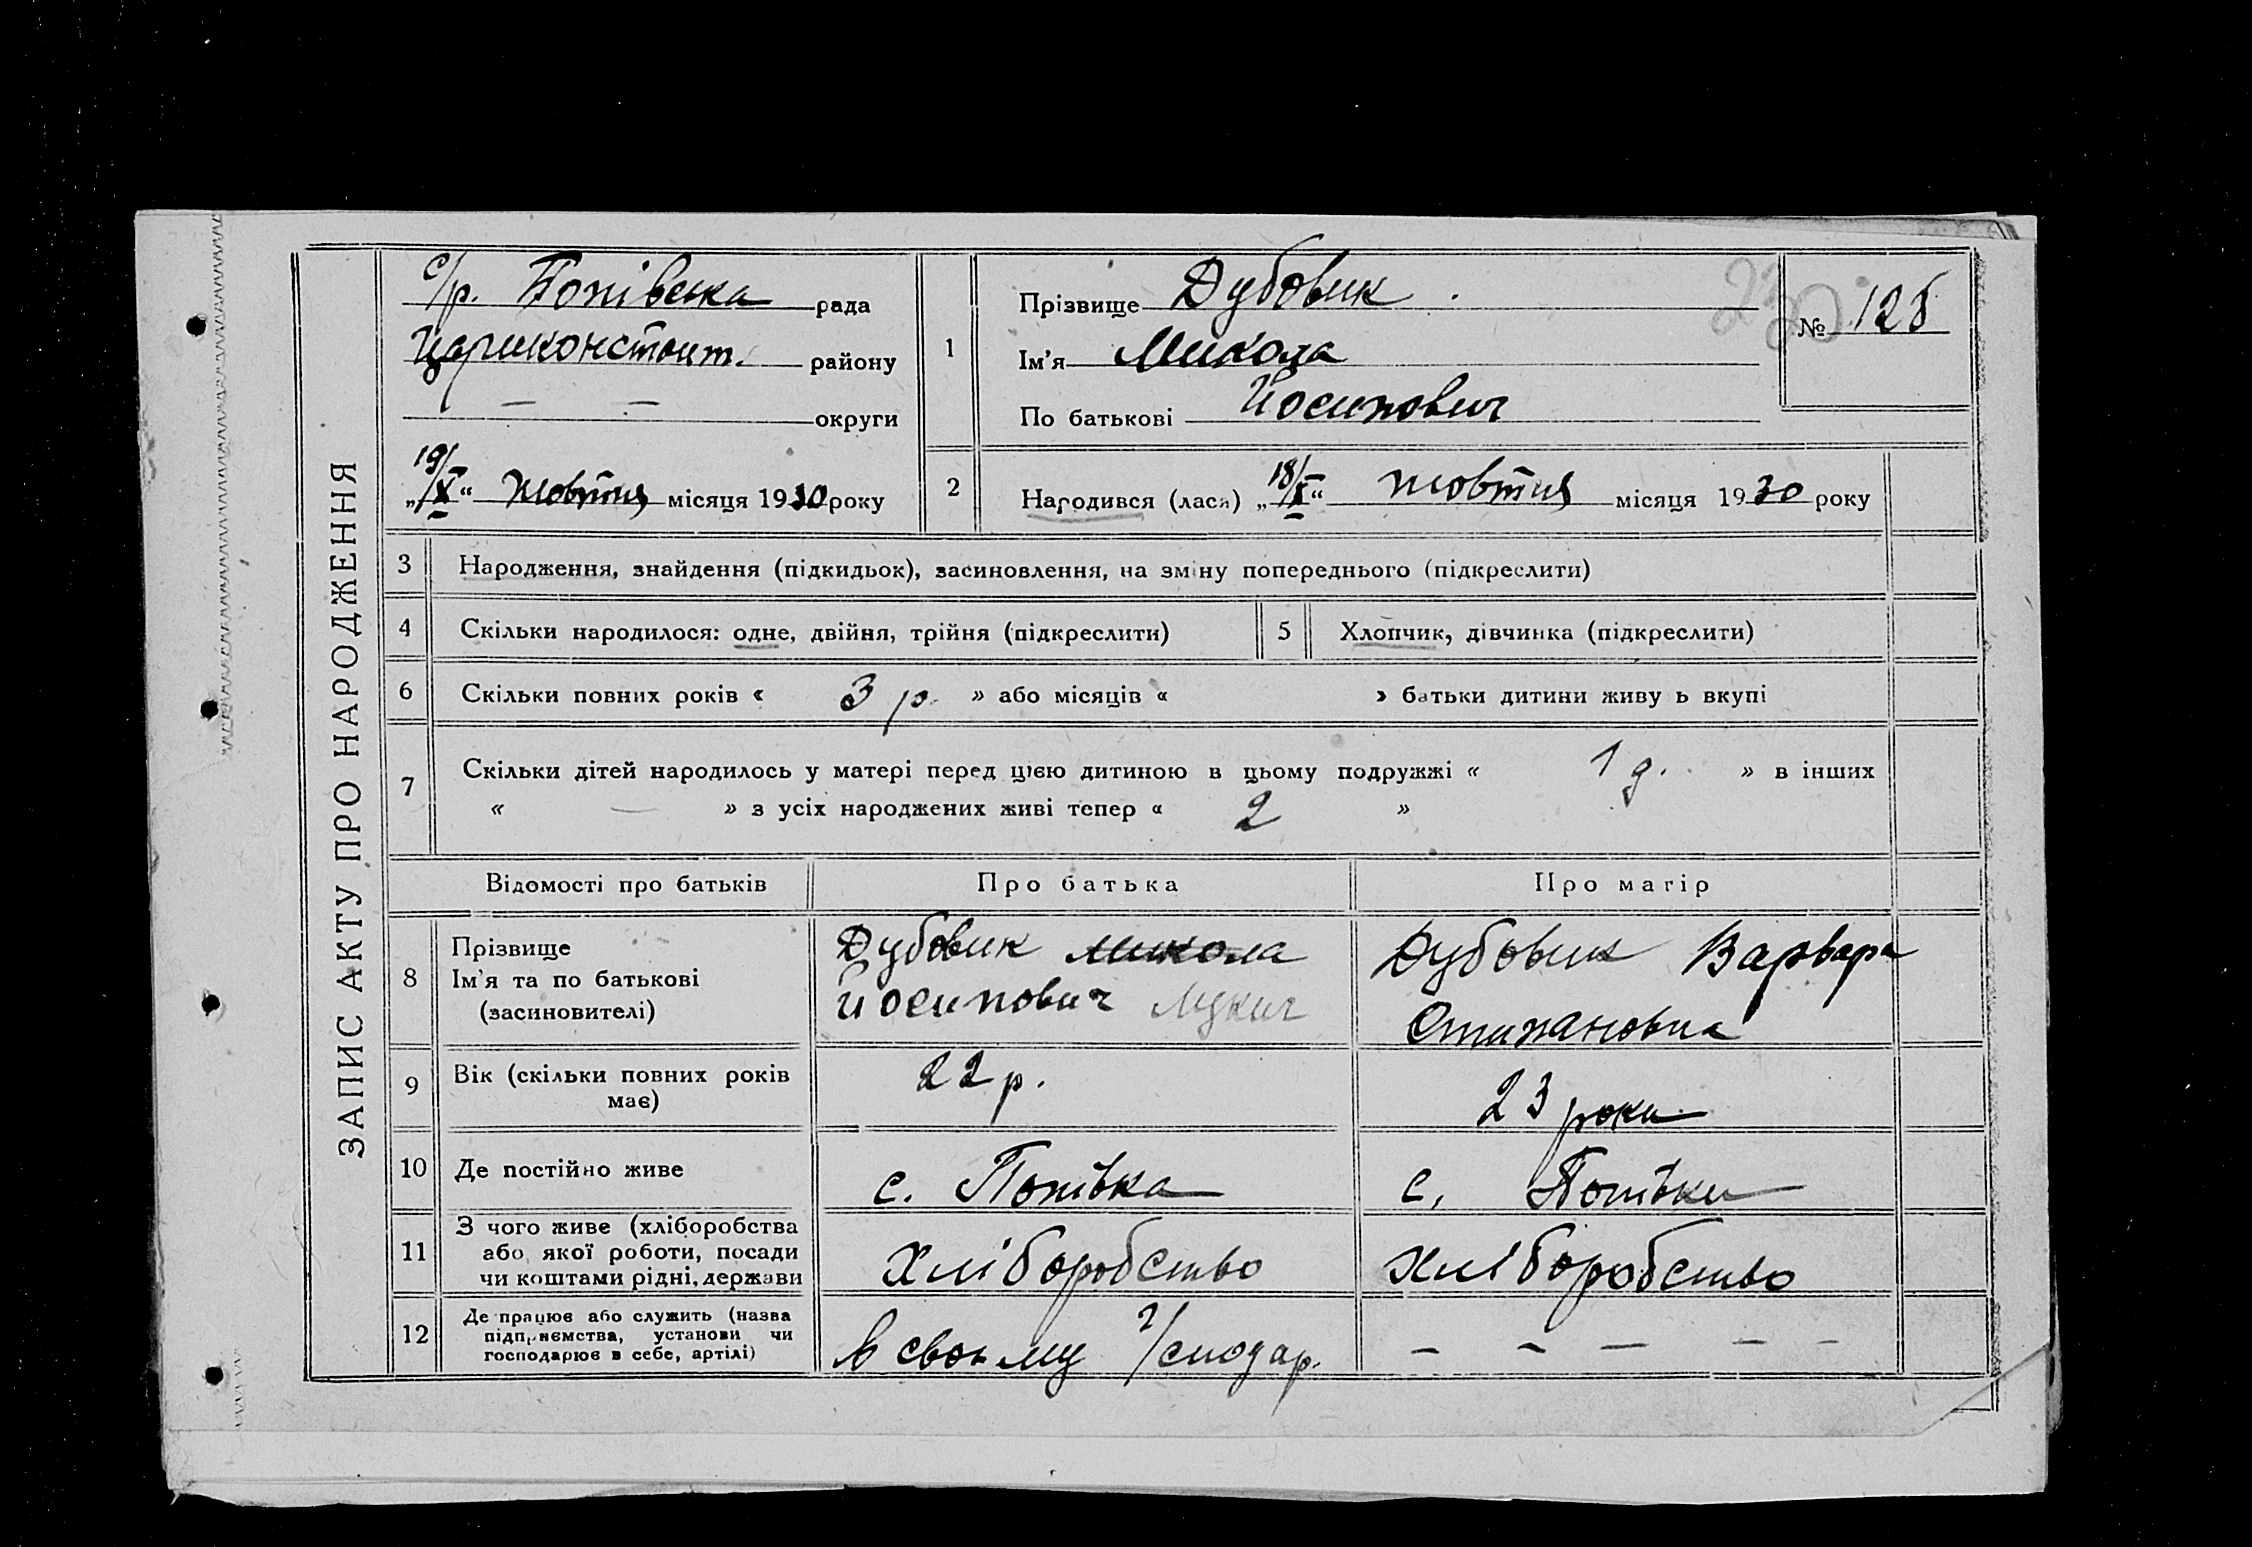 ЗАПИС АКТУ ПРО НАРОДЖЕННЯ
с/р. Попівська рада
Цариконстант. району
— — округи
„19/X“ жовтня місяця 1930 року
1
Прізвище Дубовик
Ім'я Микола
По батькові Йосипович
№ 128
2
Народився (лася) „18/X“ жовтня місяця 1930 року
3 Народження, знайдення (підкидьок), засиновлення, на зміну попереднього (підкреслити)
4 Скільки народилося: одне, двійня, трійня (підкреслити)
5 Хлопчик, дівчинка (підкреслити)
6 Скільки повних років « 3 р. » або місяців « » батьки дитини живу ь вкупі
7 Скільки дітей народилось у матері перед цією дитиною в цьому подружжі « 1 д. » в інших
« — » з усіх народжених живі тепер « 2 »
Відомості про батьків Про батька Про матір
8 Прізвище
Ім'я та по батькові
(засиновителі)
Дубовик Микола
Йосипович Лукич
Дубовик Варвара
Степановна
9 Вік (скільки повних років
має)
22 р.
23 роки
10 Де постійно живе
с. Попівка
с. Попівки
11 З чого живе (хліборобства
або якої роботи, посади
чи коштами рідні, держави
Хліборобство
Хліборобство
12 Де працює або служить (назва
підприємства, установи чи
господарює в себе, артілі)
в своьму г/сподар.
— — — — —